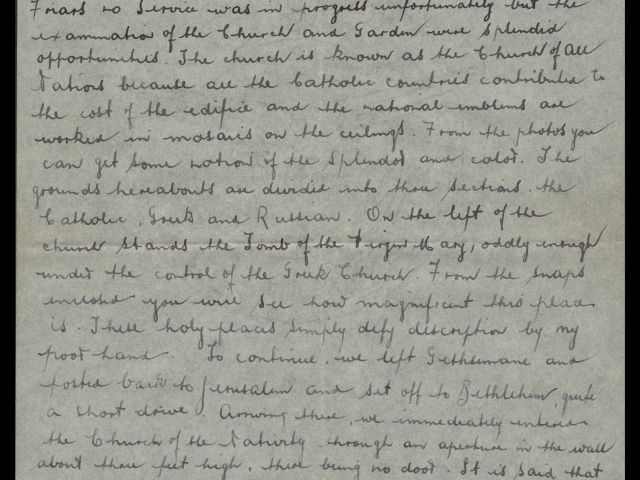 Friars no service was in progress unfortunately but the
examination of the Church and Garden were splendid
opportunities. The church is known as the Church of All
Nations because all the Catholic countries contributed to
the cost of the edifice and the national emblems are
worked in mosaics on the ceilings. From the photos you
can get some notion of the splendor and color. The
grounds hereabouts are divided into three sections, the
Catholic, Greek and Russian. On the left of the
church stands the Tomb of the Virgin Mary, oddly enough
under the control of the Greek Church. From the snaps
enclosed you will see how magnificent this place
is. These holy places simply defy description by my
poor hand. To continue, we left Gethsemane and
posted back to Jerusalem and set off to Bethlehem, quite
a short drive. Arriving there, we immediately entered
the Church of the Nativity through an aperture in the wall
about three feet high, there being no door. It is said that